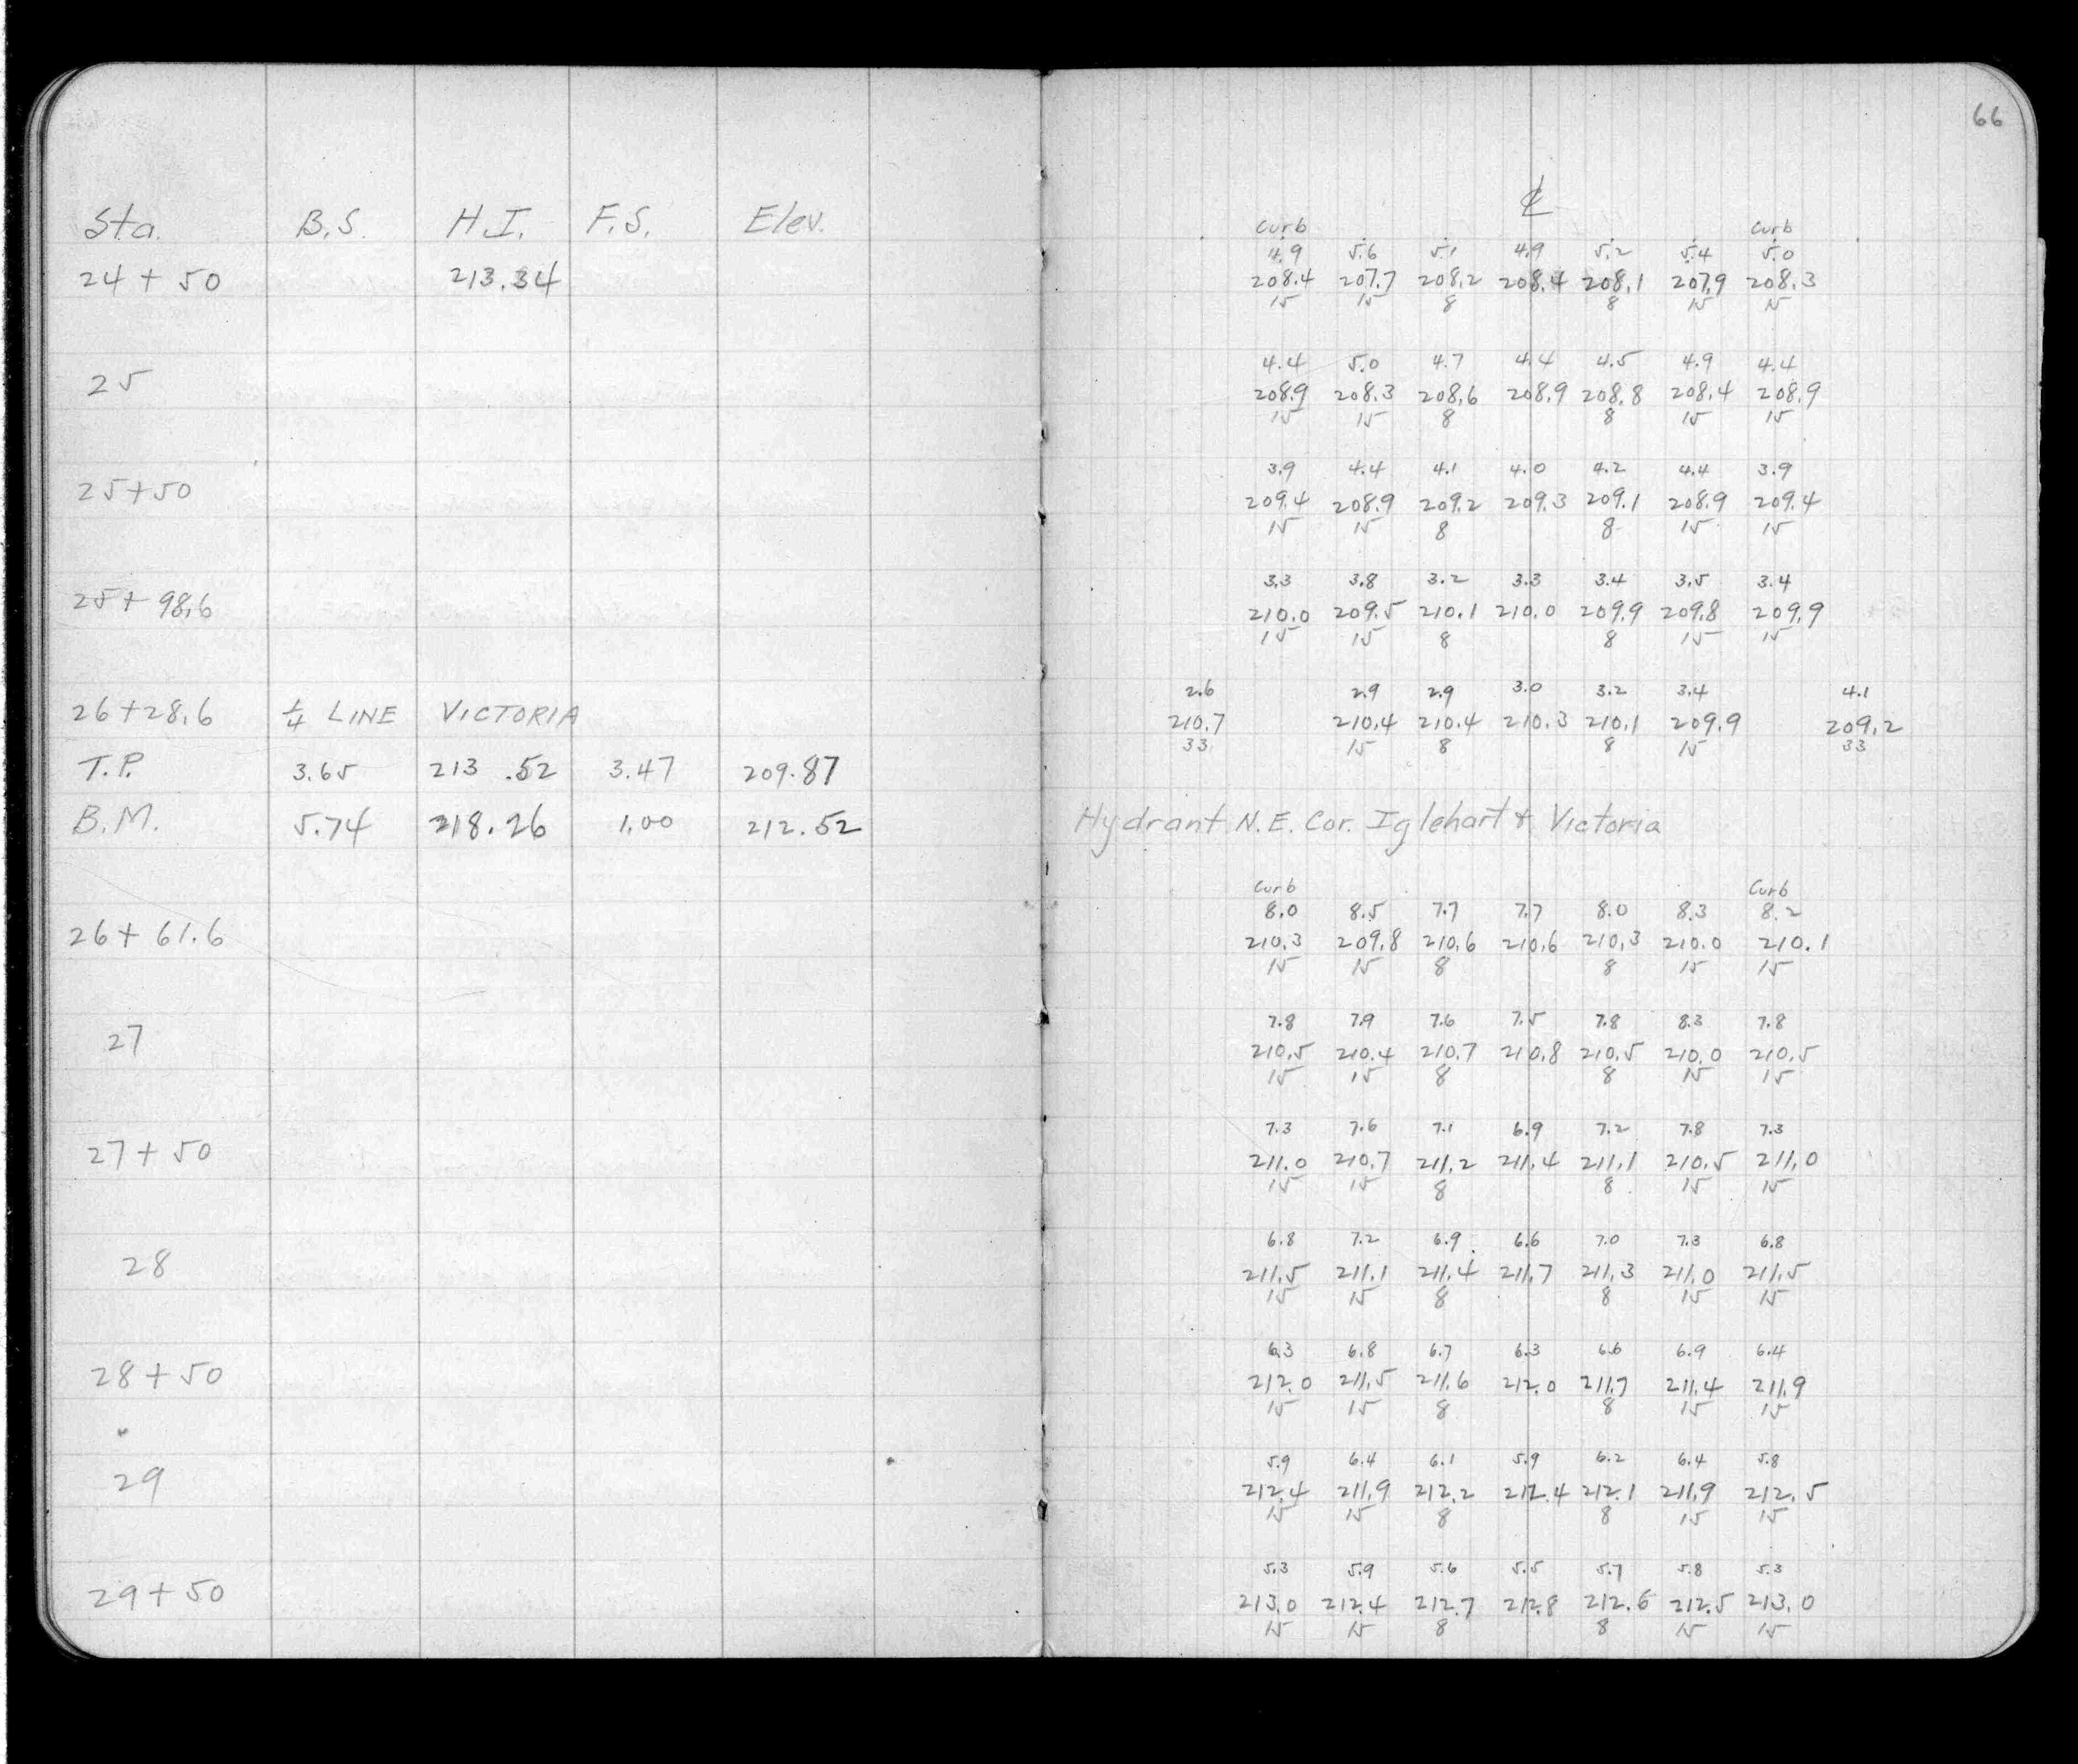 66
℄
Curb Curb
Sta. B.S. H.I. F.S. Elev.
4.9 5.6 5.1 4.9 5.2 5.4 5.0
24 + 50 213.34 208.4 207.7 208.2 208.4 208.1 207.9 208.3
15 15 8 8 15 15
4.4 5.0 4.7 4.4 4.5 4.9 4.4
25 208.9 208.3 208.6 208.9 208.8 208.4 208.9
15 15 8 8 15 15
3.9 4.4 4.1 4.0 4.2 4.4 3.9
25+50 209.4 208.9 209.2 209.3 209.1 208.9 209.4
15 15 8 8 15 15
3.3 3.8 3.2 3.3 3.4 3.5 3.4
25+ 98.6 210.0 209.5 210.1 210.0 209.9 209.8 209.9
15 15 8 8 15 15
2.6 2.9 2.9 3.0 3.2 3.4 4.1
26+28.6 ¼ LINE VICTORIA 210.7 210.4 210.4 210.3 210.1 209.9 209.2
33 15 8 8 15 33
T.P. 3.65 213.52 3.47 209.87
B.M. 5.74 218.26 1.00 212.52 Hydrant N.E. Cor. Iglehart & Victoria
Curb Curb
8.0 8.5 7.7 7.7 8.0 8.3 8.2
26+ 61.6 210.3 209.8 210.6 210.6 210.3 210.0 210.1
15 15 8 8 15 15
7.8 7.9 7.6 7.5 7.8 8.3 7.8
27 210.5 210.4 210.7 210.8 210.5 210.0 210.5
15 15 8 8 15 15
7.3 7.6 7.1 6.9 7.2 7.8 7.3
27+50 211.0 210.7 211.2 211.4 211.1 210.5 211.0
15 15 8 8 15 15
6.8 7.2 6.9 6.6 7.0 7.3 6.8
28 211.5 211.1 211.4 211.7 211.3 211.0 211.5
15 15 8 8 15 15
6.3 6.8 6.7 6.3 6.6 6.9 6.4
28+50 212.0 211.5 211.6 212.0 211.7 211.4 211.9
15 15 8 8 15 15
5.9 6.4 6.1 5.9 6.2 6.4 5.8
29 212.4 211.9 212.2 212.4 212.1 211.9 212.5
15 15 8 8 15 15
5.3 5.9 5.6 5.5 5.7 5.8 5.3
29+50 213.0 212.4 212.7 212.8 212.6 212.5 213.0
15 15 8 8 15 15